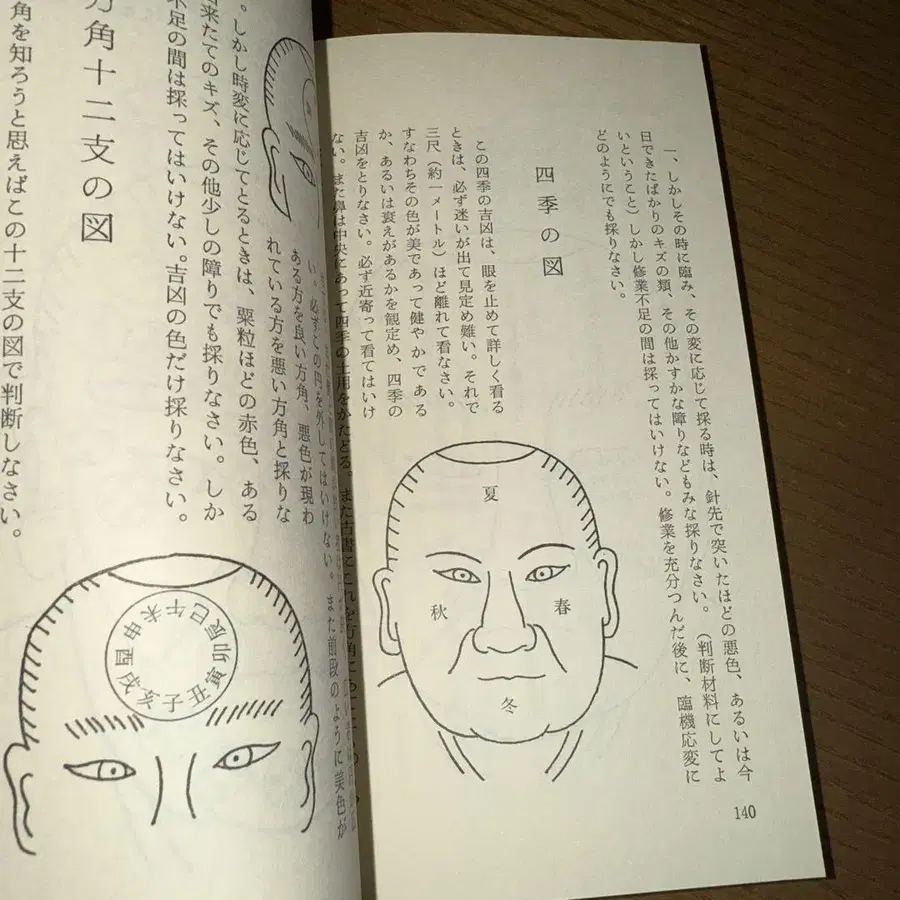 一、しかしその時に臨み、その変に応じて採る時は、針先で突いたほどの悪色、あるいは今
日できたばかりのキズの類、その他かすかな障りなどもみな採りなさい。(判断材料にしてよ
いということ)しかし修業不足の間は採ってはいけない。修業を充分つんだ後に、臨機応変に
どのようにでも採りなさい。
四季の図
この四季の吉凶は、眼を止めて詳しく看る
ときは、必ず迷いが出て見定め難い。それで
三尺(約一メートル)ほど離れて看なさい。
すなわちその色が美であって健やかである
か、あるいは衰えがあるかを観定め、四季の
吉凶をとりなさい。必ず近寄って看てはいけ
ない。また鼻は中央にあって四季の土用をかたどる。また古書にこれを方角に
夏
春
秋
冬
140
い。必ずこの円を外してはいけない。また前段のように美色が
ある方を良い方角、悪色が現わ
れている方を悪い方角と採りな
。しかし時変に応じてとるときは、粟粒ほどの赤色、ある
来たてのキズ、その他少しの障りでも採りなさい。しか
不足の間は採ってはいけない。吉凶の色だけ採りなさい。
方角十二支の図
角を知ろうと思えばこの十二支の図で判断しなさい。
子丑寅卯辰巳午未申酉戌亥